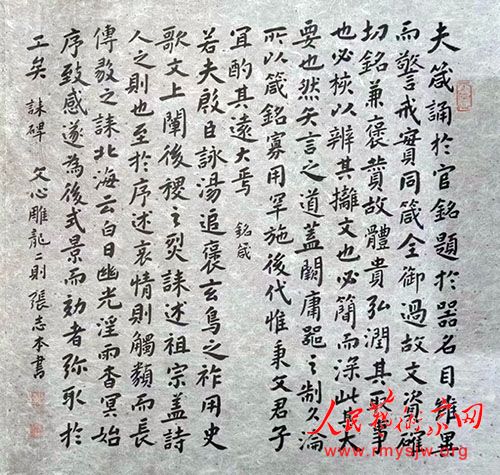 夫箴誦於官銘題於器名目雖異
而警戒實同箴全御過故文資確
切銘兼褒贊故體貴弘潤其取事
也必核以辨其攡文也必簡而深此其大
要也然矢言之道蓋闕庸器之制久淪
所以箴銘寡用罕施後代惟秉文君子
宜酌其遠大焉 銘箴
若夫殷臣詠湯追褒玄鳥之祚用史
歌文上闡後稷之烈誄述祖宗蓋詩
人之則也至於序述哀情則觸類而長
傅毅之誄北海云白日幽光淫雨杳冥始
序致感遂為後式景而効者弥取於
工矣 誄碑 文心雕龍二則 張志本書
人民艺术家网
www.rmysjw.org